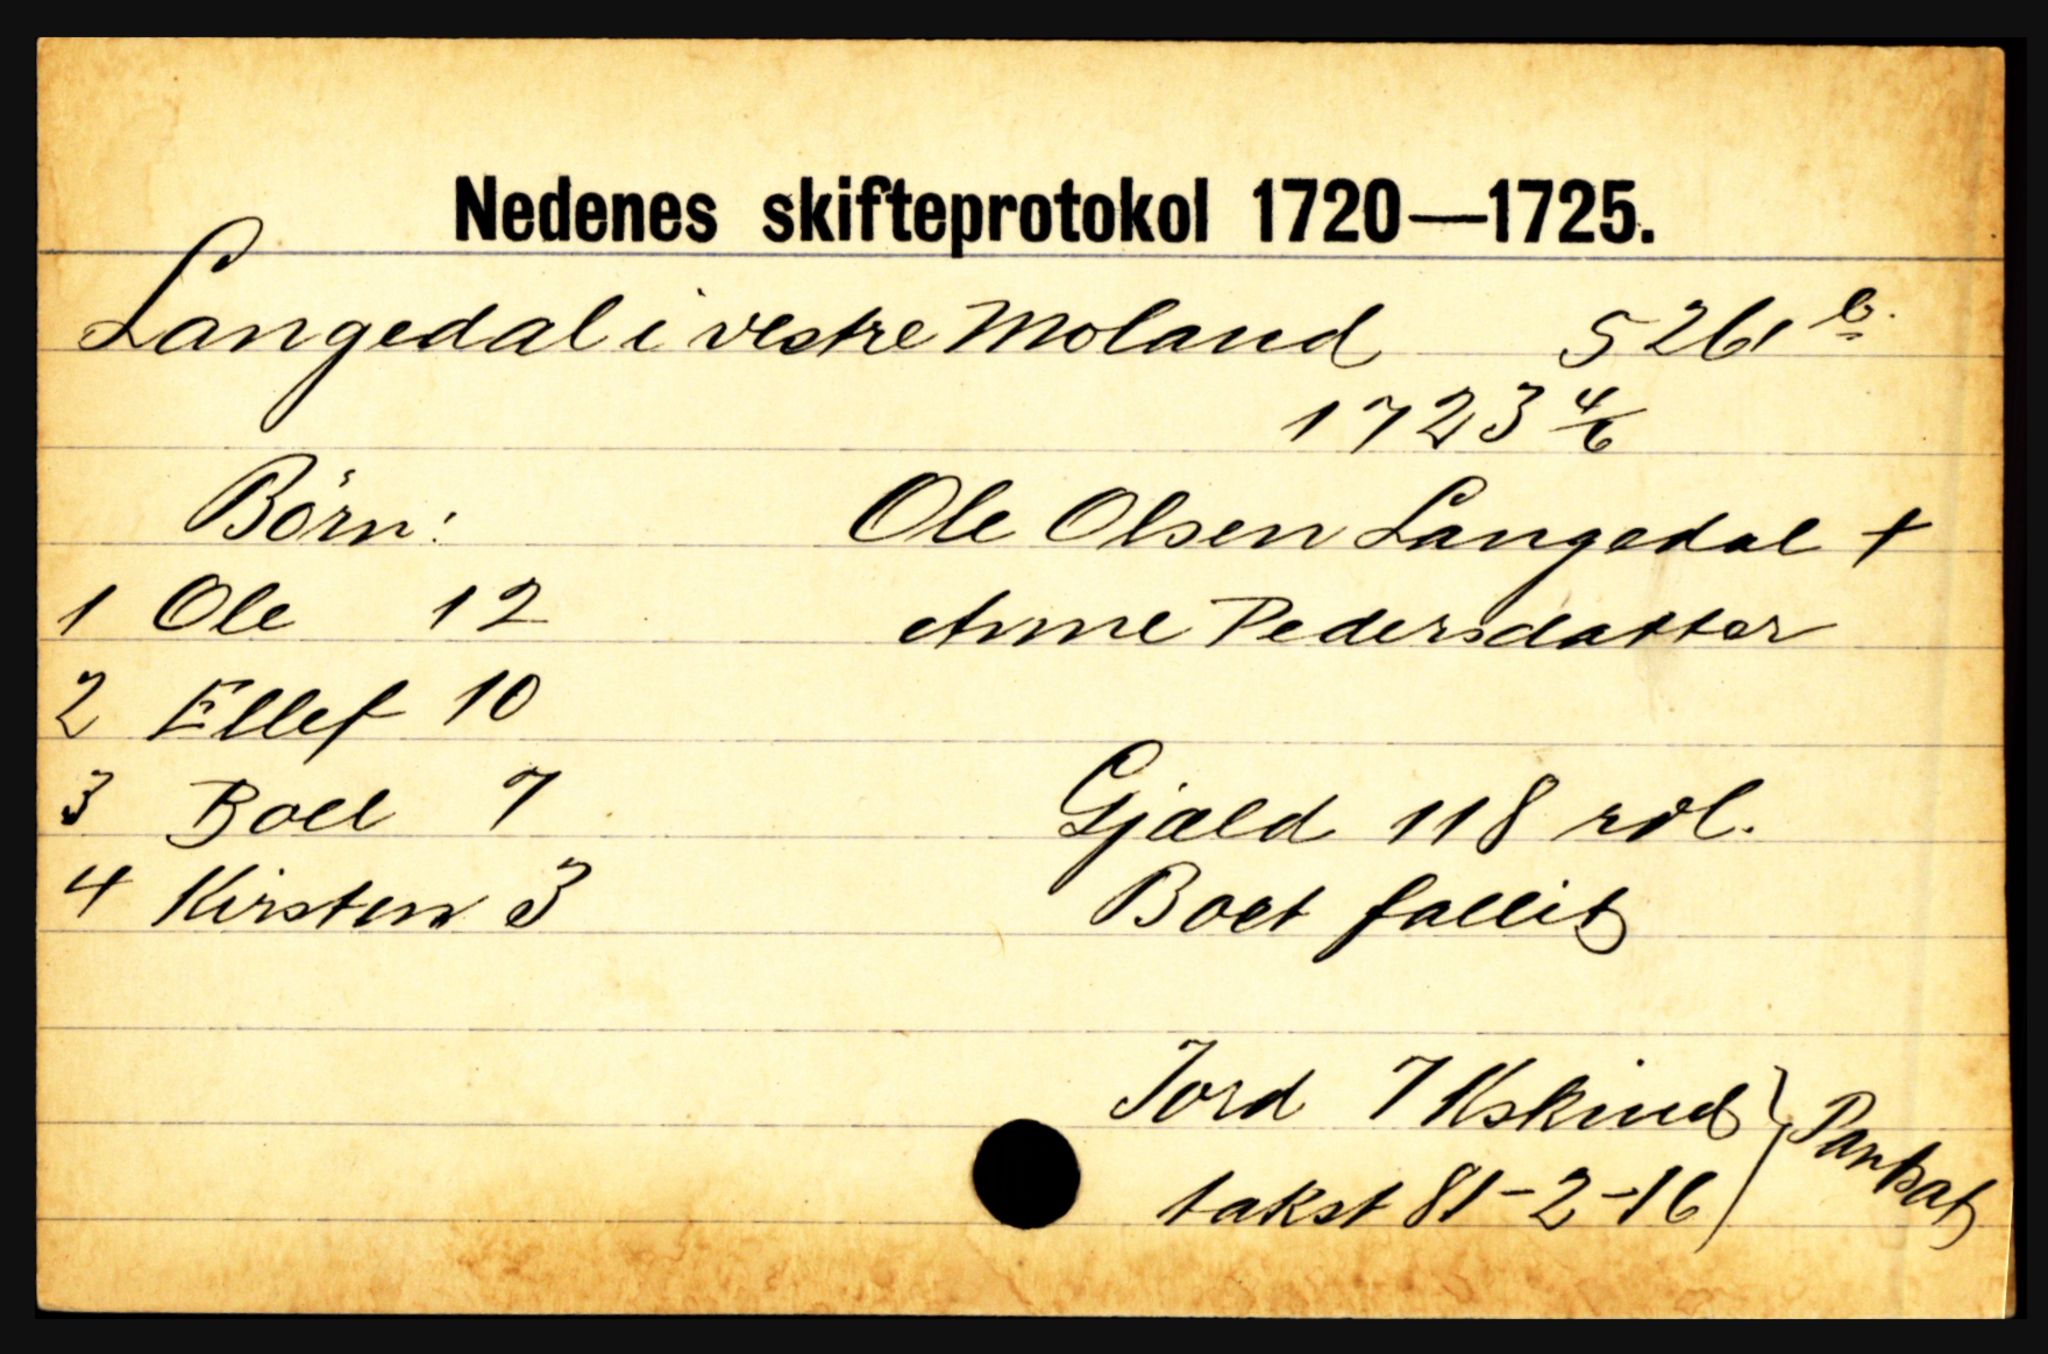 Nedenes skifteprotokol 1720—1725.
Langedal i vestre Moland 526, b.
1723 4/6
Börn: Ole Olsen Langedal +
1 Ole 12 Anne Pedersdatter
2 Ellef 10
3 Boel 7 Gjæld 118 rdl.
4 Kirsten 3 Boet fallit
Jord 7 Kskind } Pantsat
takst 81-2-16